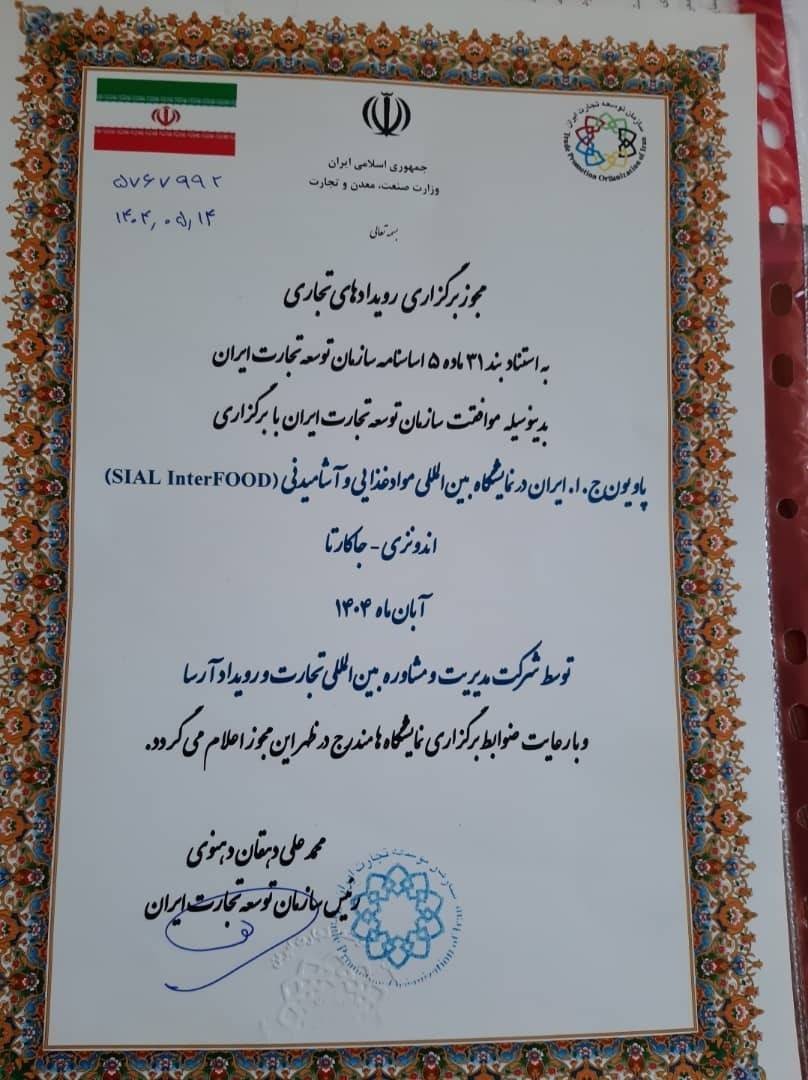 سازمان توسعه تجارت ایران
Trade Promotion Organization of Iran
جمهوری اسلامی ایران
وزارت صنعت، معدن و تجارت
۵۷۶۷۹۹۲
۱۴۰۴,۰۵,۱۴
بسمه تعالی
مجوز برگزاری رویدادهای تجاری
به استناد بند ۳۱ ماده ۵ اساسنامه سازمان توسعه تجارت ایران
بدینوسیله موافقت سازمان توسعه تجارت ایران با برگزاری
پاویون ج.ا. ایران در نمایشگاه بین‌المللی مواد غذایی و آشامیدنی (SIAL InterFOOD)
اندونزی - جاکارتا
آبان ماه ۱۴۰۴
توسط شرکت مدیریت و مشاوره بین‌المللی تجارت و رویداد آرسا
و با رعایت ضوابط برگزاری نمایشگاه ها مندرج در ظهر این مجوز اعلام می گردد.
محمد علی دهقان دهنوی
رئیس سازمان توسعه تجارت ایران
سازمان توسعه تجارت ایران
Trade Promotion Organization of Iran